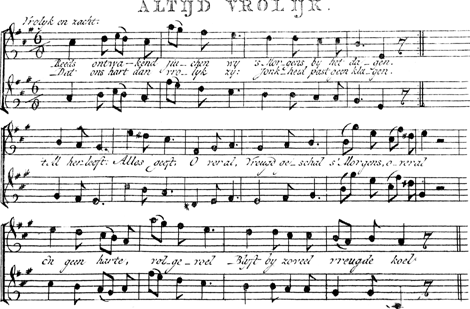 ALTIJD VROLIJK.
Vrolyk en zacht:
Reeds ontwa-kend jui-chen wy 's Mor-gens, by het da-gen.
Dat ons hart dan vro-lyk zy: Jonk-heid past geen kla-gen.
't Al herleeft: Alles geeft: O-veral, Vreugd ge-schal 's Morgens, o-veral
En geen harte, vol ge-voel Blyft by zoveel vreugde koel.